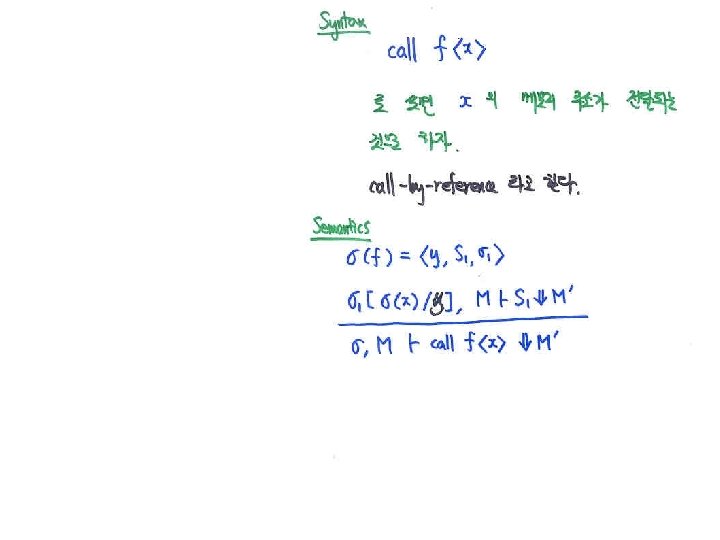 Syntax
call f<x>
로 쓰면 x 의 메모리 주소가 전달되는
것으로 하자.
call-by-reference 라고 한다.
Semantics
σ(f) = <y, S₁, σ₁>
σ₁[σ(x)/y], M ⊢ S₁ ⇓ M'
σ, M ⊢ call f<x> ⇓ M'